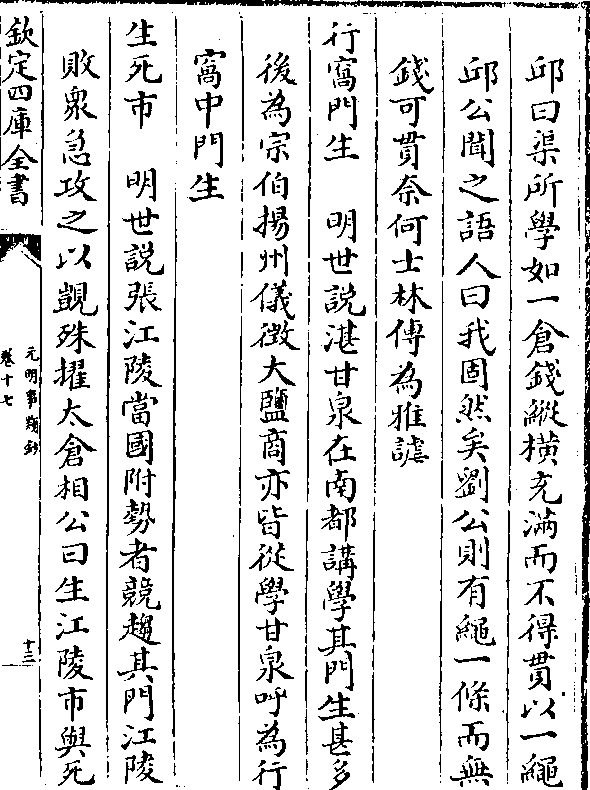 邱曰渠所學如一倉錢縱橫充滿而不得貫以一繩
邱公聞之語人曰我固然矣劉公則有繩一條而無
錢可貫奈何士林傳為雅謔
行窩門生　明世說湛甘泉在南都講學其門生甚多
後為宗伯揚州儀徵大鹽商亦皆從學甘泉呼為行
窩中門生
生死市　明世說張江陵當國附勢者競趨其門江陵
敗衆急攻之以覬殊擢太倉相公曰生江陵市與死
欽定四庫全書
元明事類鈔
卷十七
十三